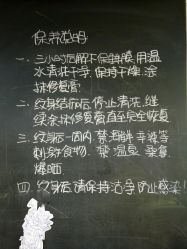 保养说明
一、三小时后解下保鲜膜,用温
水清洗干净,保持干燥,涂
抹修复膏
二、纹身结痂后,停止清洗,继
续涂抹修复膏直至完全恢复
三、纹身后一周内,禁酒鲜辛辣等
刺激食物。禁温显 桑拿
爆晒
四、纹身后请保持洁净,防止感染!